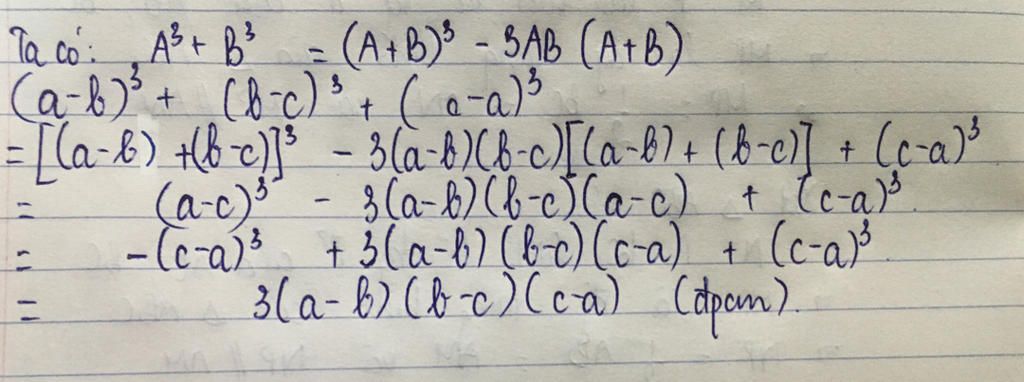 Ta có: A³ + B³ = (A+B)³ - 3AB (A+B)
(a-b)³ + (b-c)³ + (c-a)³
= [(a-b) + (b-c)]³ - 3(a-b)(b-c)[(a-b) + (b-c)] + (c-a)³
= (a-c)³ - 3(a-b)(b-c)(a-c) + (c-a)³.
= -(c-a)³ + 3(a-b)(b-c)(c-a) + (c-a)³.
= 3(a-b)(b-c)(c-a) (đpcm).